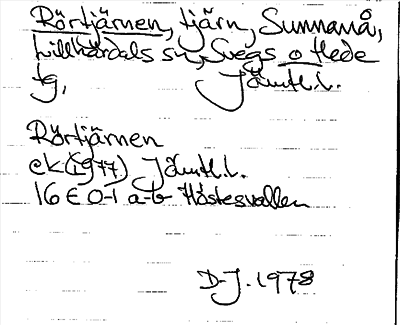 Rörtjärnen, tjärn, Sunnanå,
Lillhärdals sn, Svegs o Hede
tg, Jämtl.l.
Rörtjärnen
ek (1977) Jämtl.l.
16 E 0-1 a-b Håstesvallen
D-J. 1978